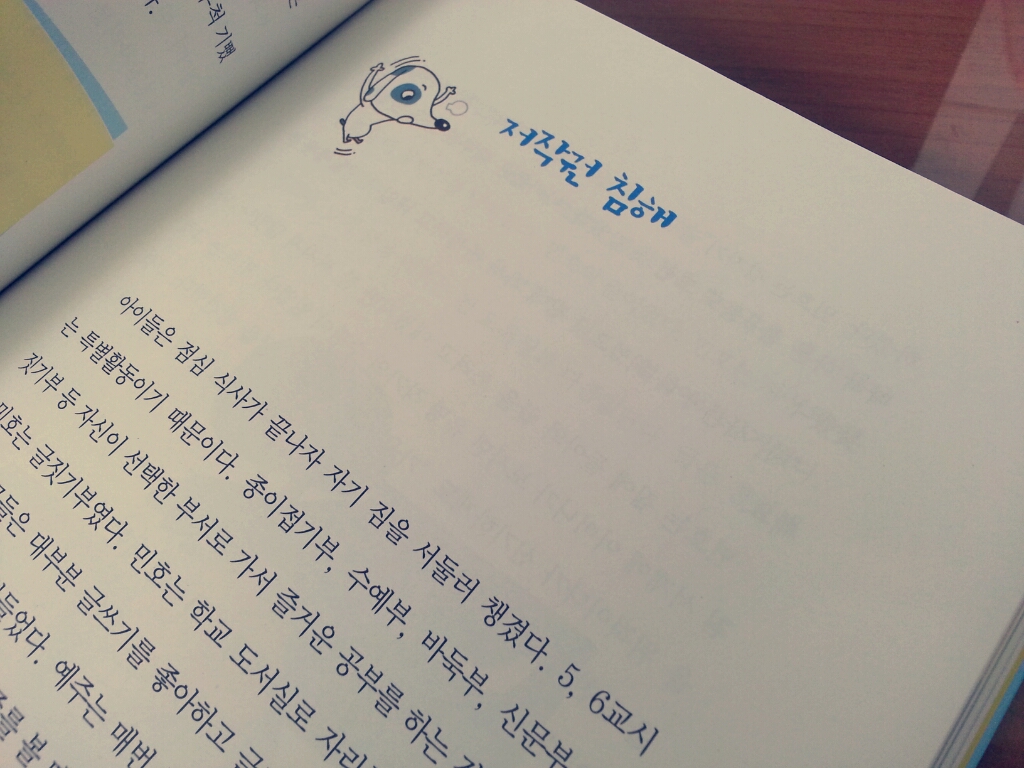 척 기뻤
다.
저작권 침해
아이들은 점심 식사가 끝나자 자기 짐을 서둘러 챙겼다. 5, 6교시
는 특별활동이기 때문이다. 종이접기부, 수예부, 바둑부, 신문부,
짓기부 등 자신이 선택한 부서로 가서 즐거운 공부를 하는
민호는 글짓기부였다. 민호는 학교 도서실로
대부분 글쓰기를 좋아하고
들었다. 예주는 매번
를 볼